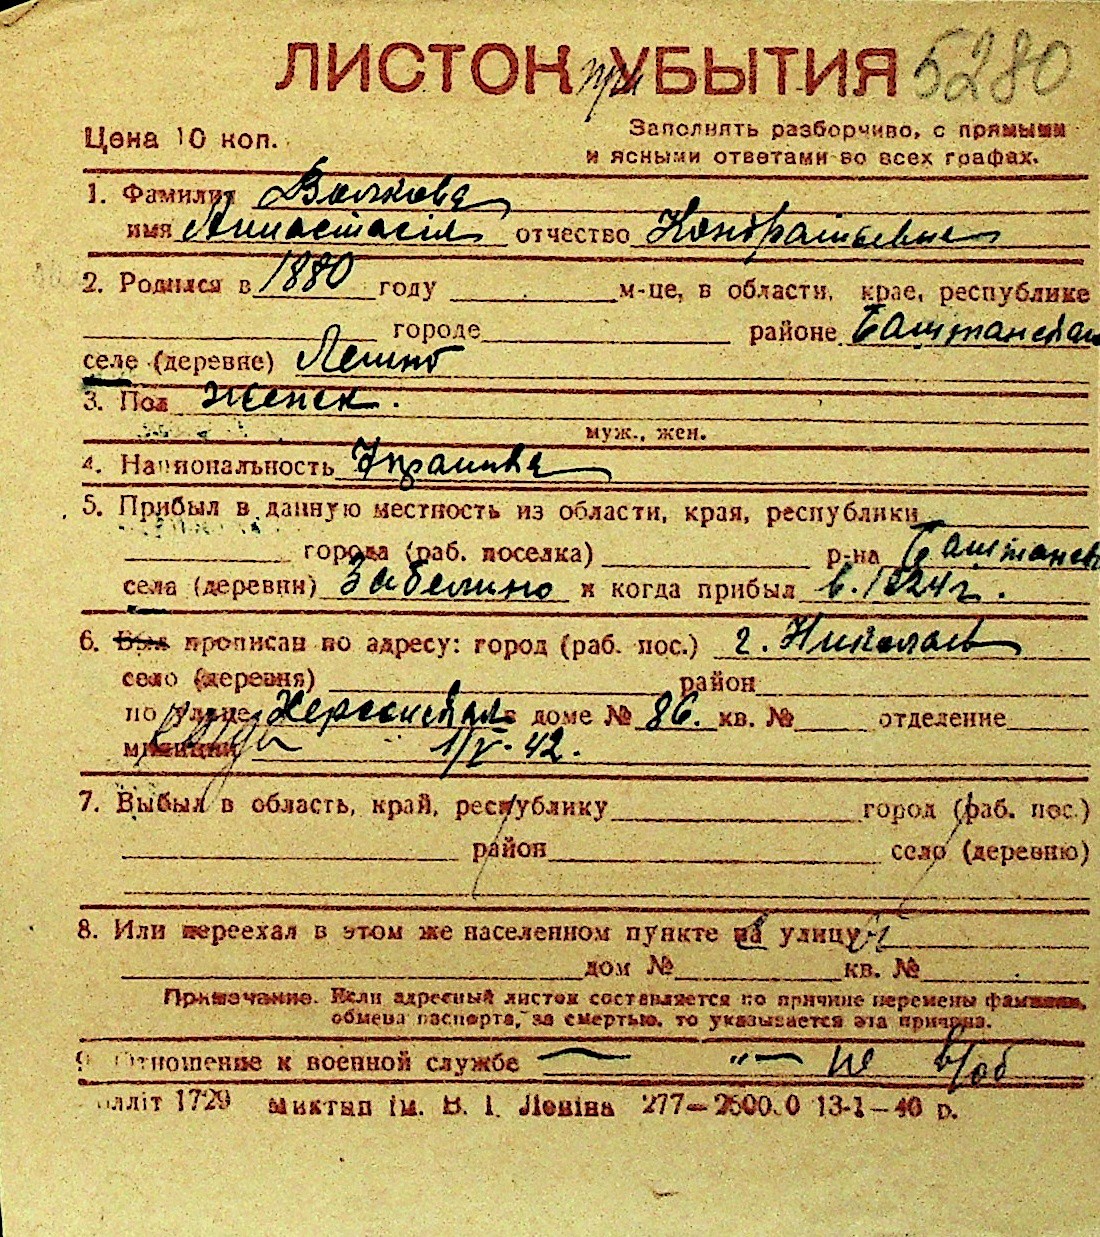 ЛИСТОК при УБЫТИЯ 5280
Цена 10 коп.
Заполнять разборчиво, с прямыми
и ясными ответами во всех графах.
1. Фамилия Волкова
имя Анастасія отчество Кондратьевна
2. Родился в 1880 году м-це, в области, крае, республике
городе районе Баштанском
селе (деревне)
3. Пол женск.
муж., жен.
4. Национальность Украинка
5. Прибыл в данную местность из области, края, республики
города (раб. поселка) р-на Баштанск
села (деревни) Забелино и когда прибыл в 1924 г.
6. Был прописан по адресу: город (раб. пос.) г. Николаев
село (деревня) район
по улице Херсонская в доме № 86. кв. № отделение
милиции 1/V-42.
7. Выбыл в область, край, республику город (раб. пос.)
район село (деревню)
8. Или переехал в этом же населенном пункте на улицу
дом № кв. №
Примечание. Если адресный листок составляется по причине перемены фамилии,
обмена паспорта, за смертью, то указывается эта причина.
9. Отношение к военной службе — „— не в/об
олліт 1729 Миктип ім. В. І. Леніна 277—2500.0 13-1—40 р.